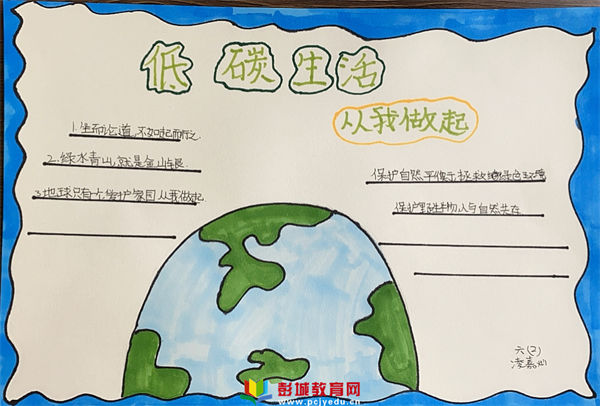 低碳生活
从我做起
1.坐而论道,不如起而行之
2.绿水青山,就是金山银
3.地球只有一个 爱护家园 从我做起
保护自然 平衡 拯救 绿色环境
保护野生动物 人与自然共存
六(2)
凌嘉
彭城教育网
www.pcjyedu.cn